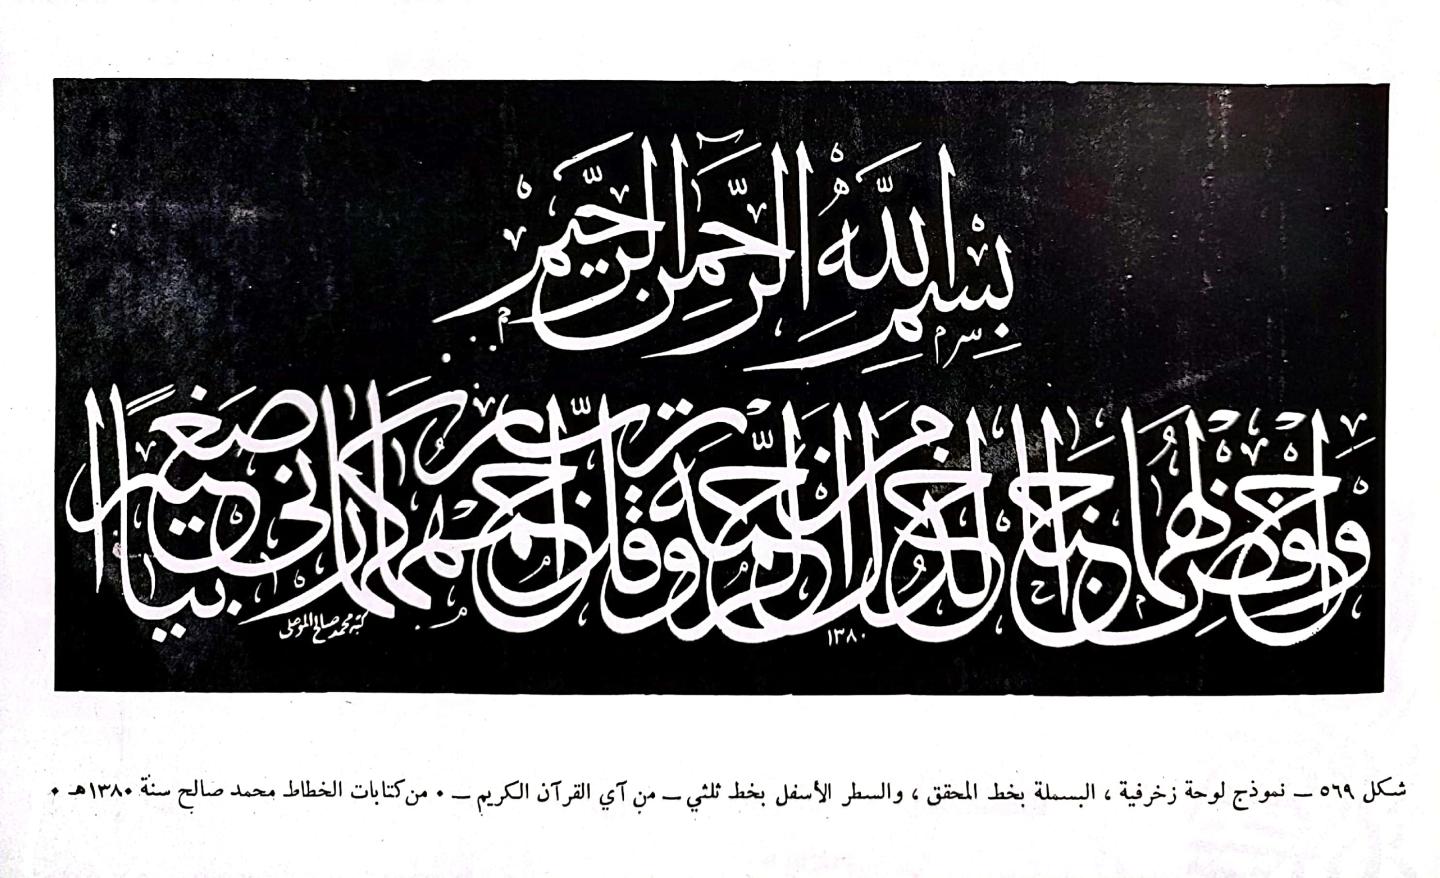 بِسْمِ اللَّهِ الرَّحْمَٰنِ الرَّحِيمِ
واخفض لهما جناح الذل من الرحمة وقل رب ارحمهما كما ربياني صغيرا
كتبه محمد صالح الموصلي
١٣٨٠
شكل ٥٦٩ ــ نموذج لوحة زخرفية ، البسملة بخط المحقق ، والسطر الأسفل بخط ثلثي ــ من آي القرآن الكريم ــ ٠ من كتابات الخطاط محمد صالح سنة ١٣٨٠هـ ٠